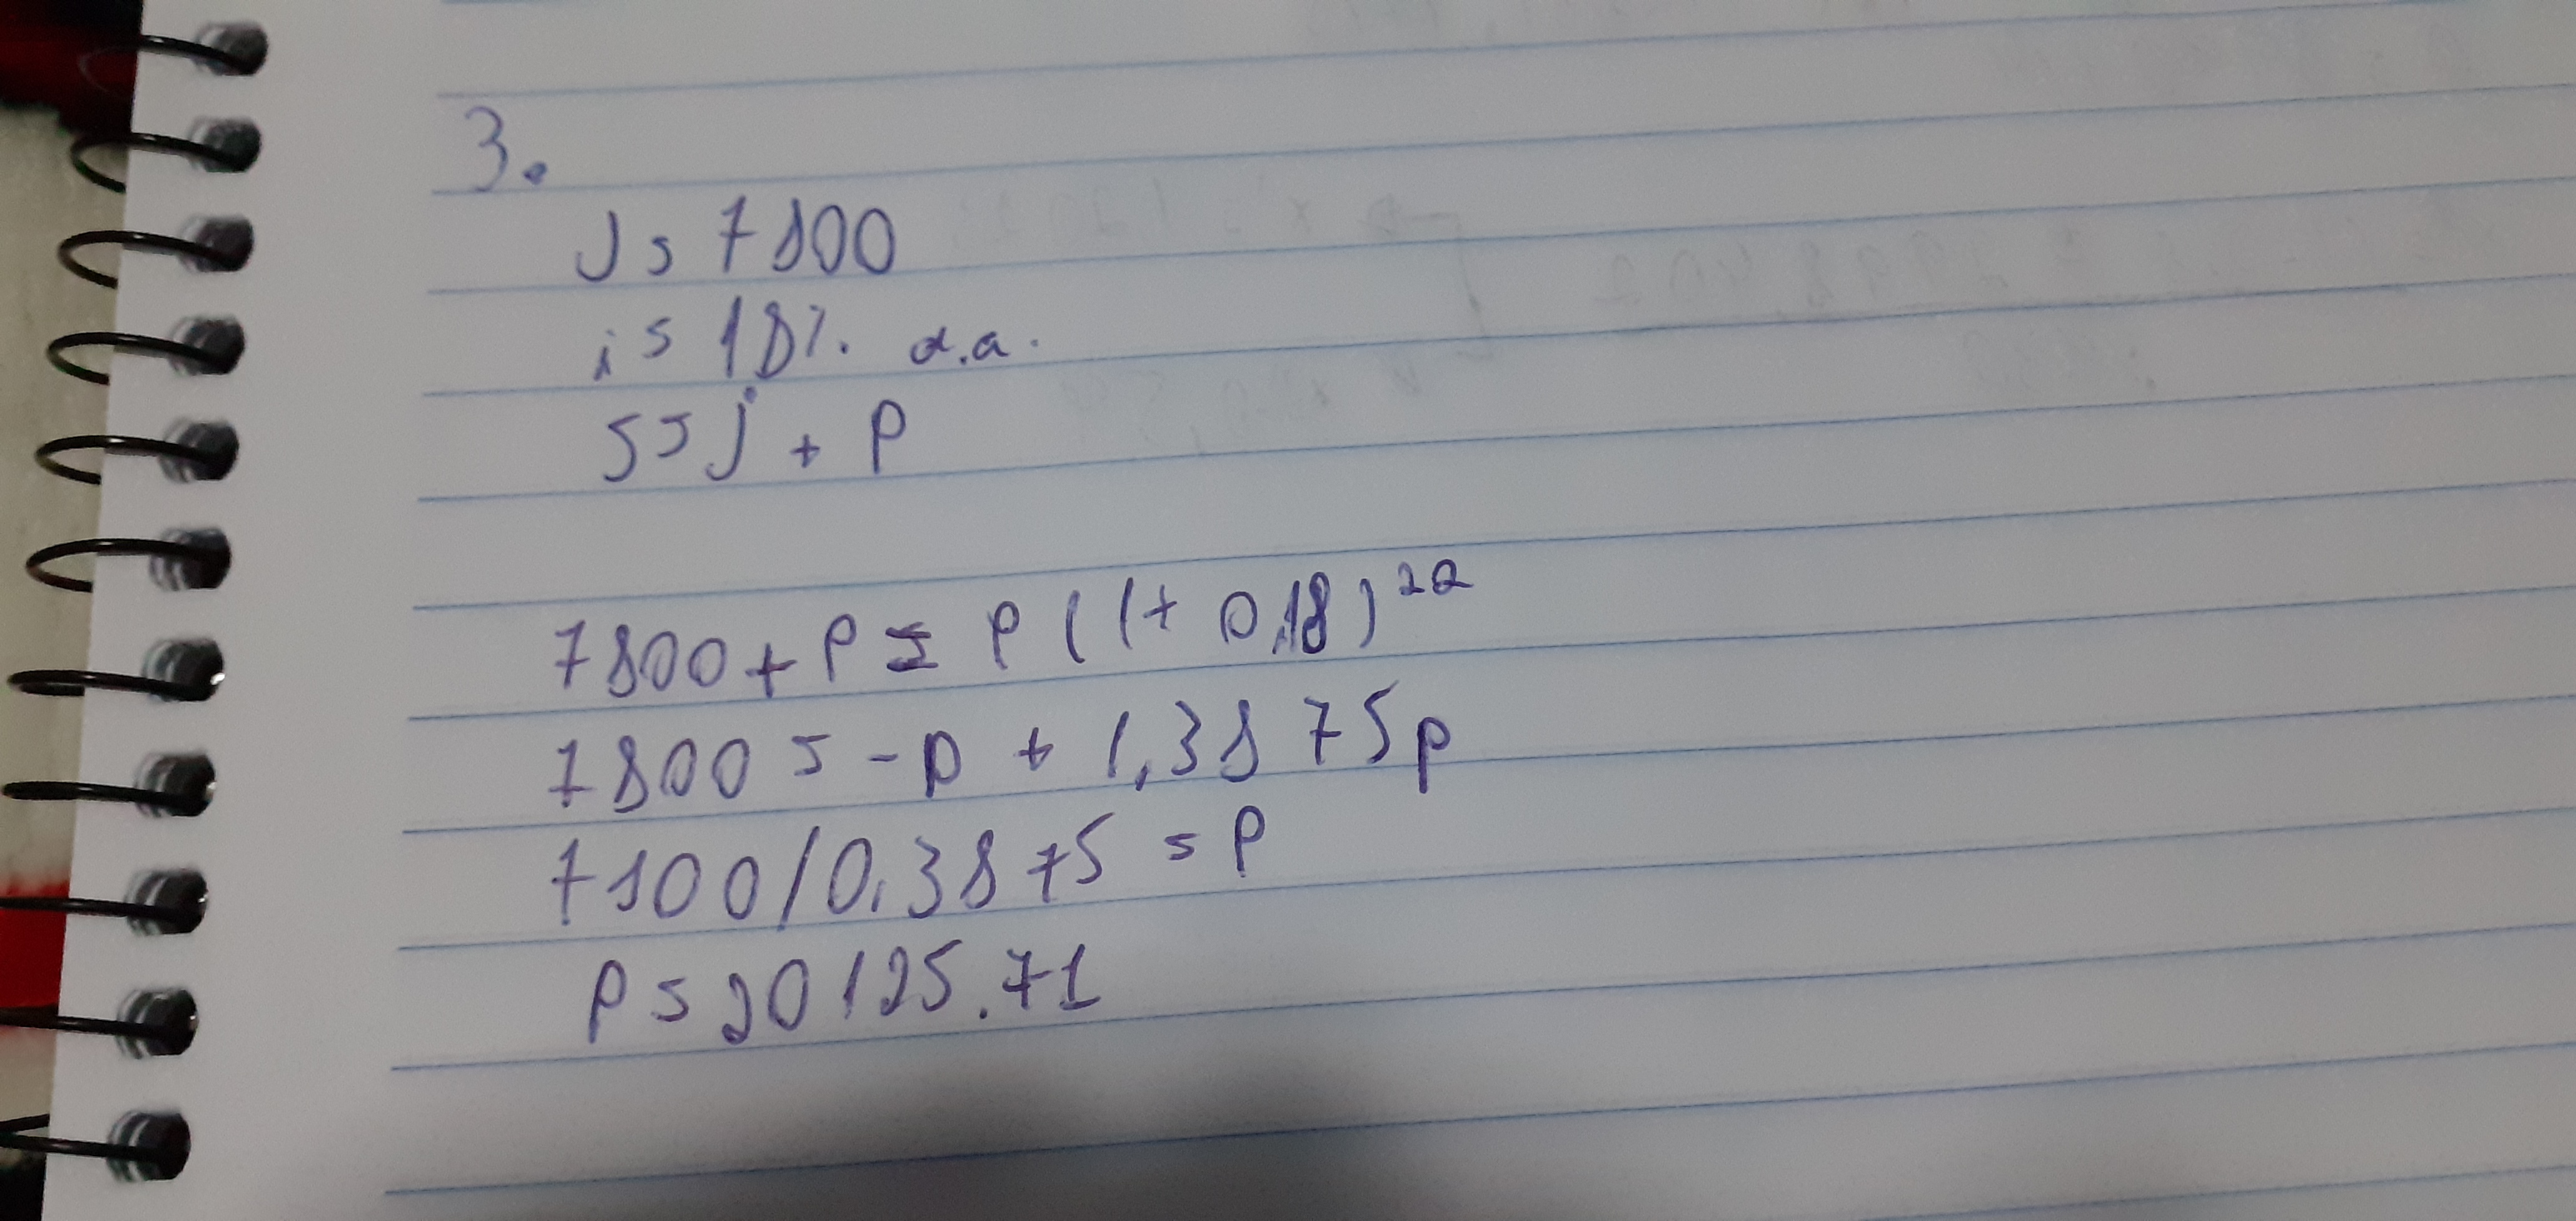 3.
J = 7800
i = 18% a.a.
S = j + P
7800 + P = P (1 + 0,18)²ᵃ
7800 = -p + 1,3875p
7800/0,3875 = P
P = 20125.71